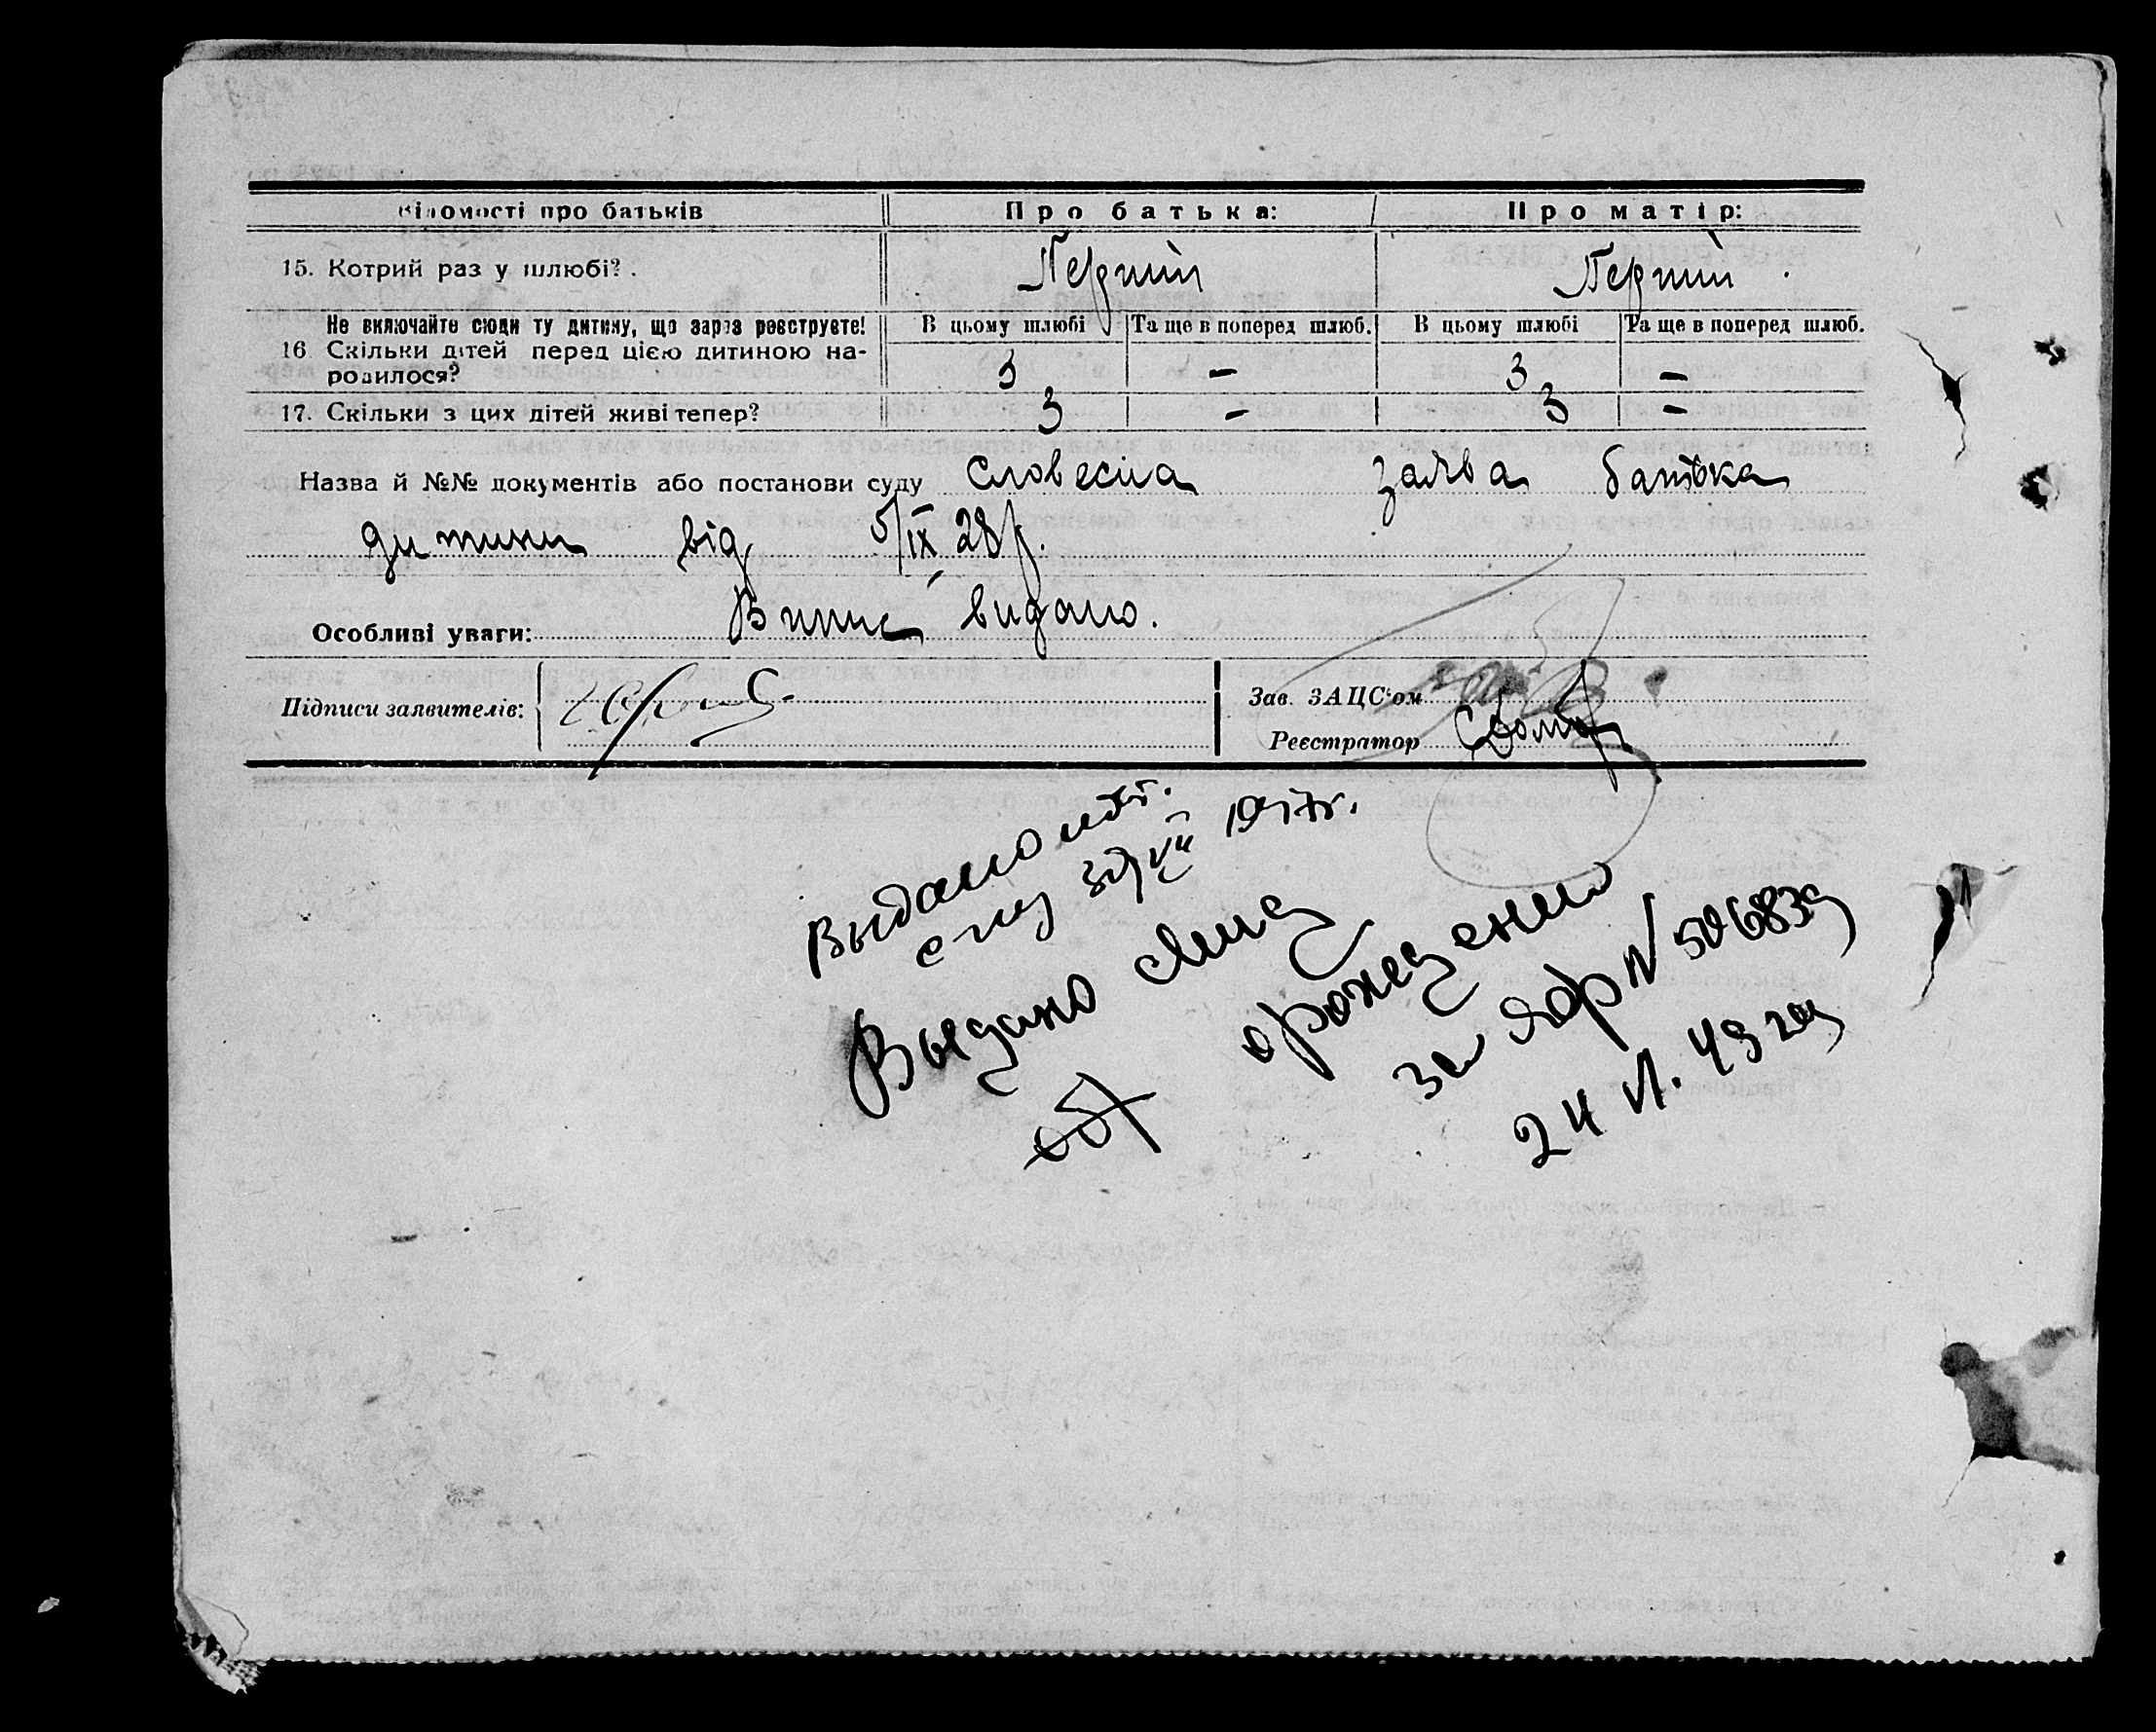 Відомості про батьків Про батька: Про матір:
15. Котрий раз у шлюбі? . Перший Перший
Не включайте сюди ту дитину, що зараз реєструєте! В цьому шлюбі Та ще в поперед шлюб. В цьому шлюбі Та ще в поперед шлюб.
16. Скільки дітей перед цією дитиною на-
родилося? 3 – 3 –
17. Скільки з цих дітей живі тепер? 3 – 3 –
Назва й №№ документів або постанови суду Словесна заява батька
дитини від 5/IX 28р.
Особливі уваги: Випис видано.
Підписи заявителів:
Зав. ЗАЦС'ом
Реєстратор
Выдано
1947г.
Выдано
о рождении
за № 506839
24 VI. 49 год